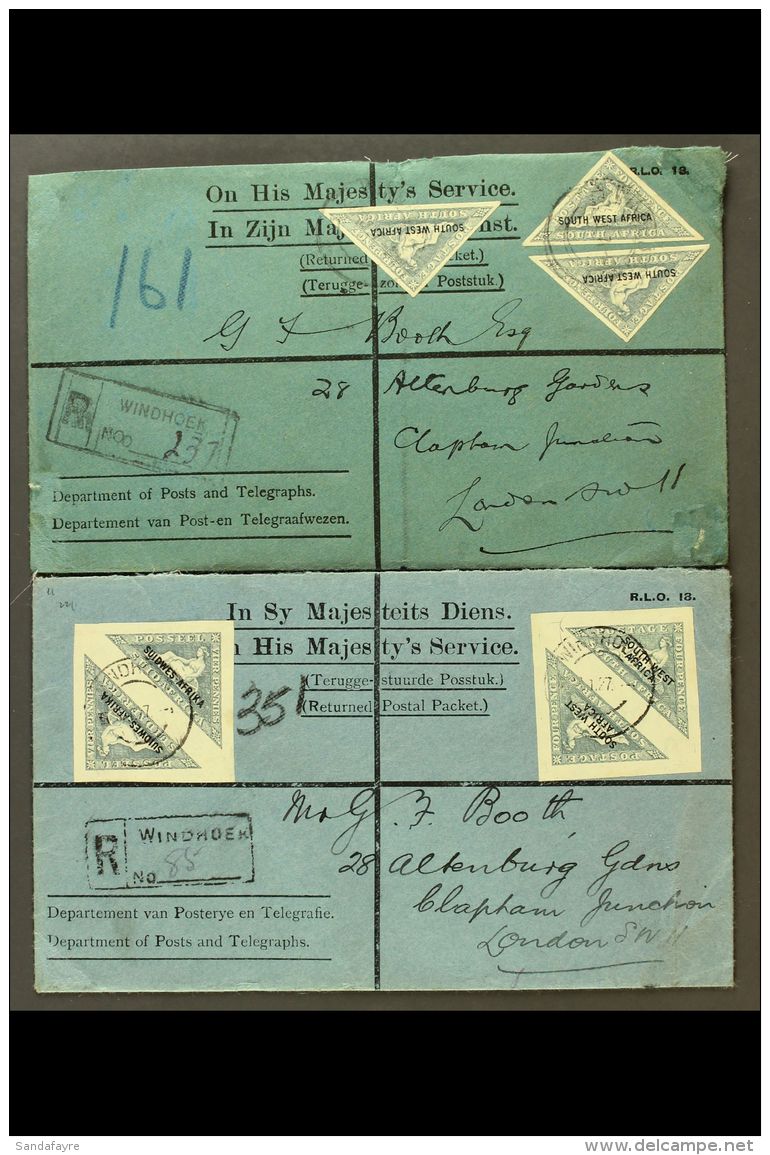 R.L.O. 13.
On His Majesty's Service.
In Zijn Maj nst.
(Returned ket.)
(Terugge- zon Poststuk.)
SOUTH WEST AFRICA
SOUTH AFRICA
SOUTH WEST AFRICA
SOUTH AFRICA
SOUTH WEST AFRICA
SOUTH AFRICA
161
G F Booth Esq
28 Altenburg Gardens
Clapham Junction
London SW 11
R WINDHOEK
No 237
Department of Posts and Telegraphs.
Departement van Post-en Telegraafwezen.
R.L.O. 13.
In Sy Majesteits Diens.
n His Majesty's Service.
(Terugge-stuurde Posstuk.)
(Returned Postal Packet.)
POSSEEL
VIER PENNIES
SUIDWES-AFRIKA
VIER PENNIES
SUIDWES-AFRIKA
POSSEEL
351
POSTAGE
FOUR PENCE
SOUTH WEST
AFRICA
FOUR PENCE
SOUTH WEST
AFRICA
POSTAGE
Mr G. F. Booth,
28 Altenburg Gdns
Clapham Junction
London SW 11
R WINDHOEK
No 85
Departement van Posterye en Telegrafie.
Department of Posts and Telegraphs.
Sandafayre
delcampe.net